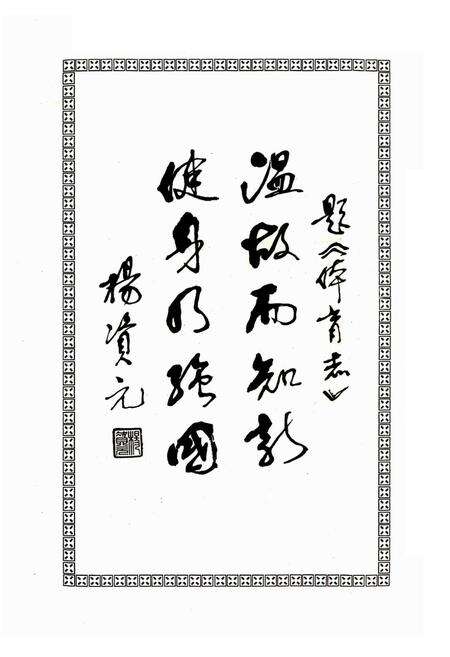 题《体育志》
温故而知新
健身乃强國
楊資元